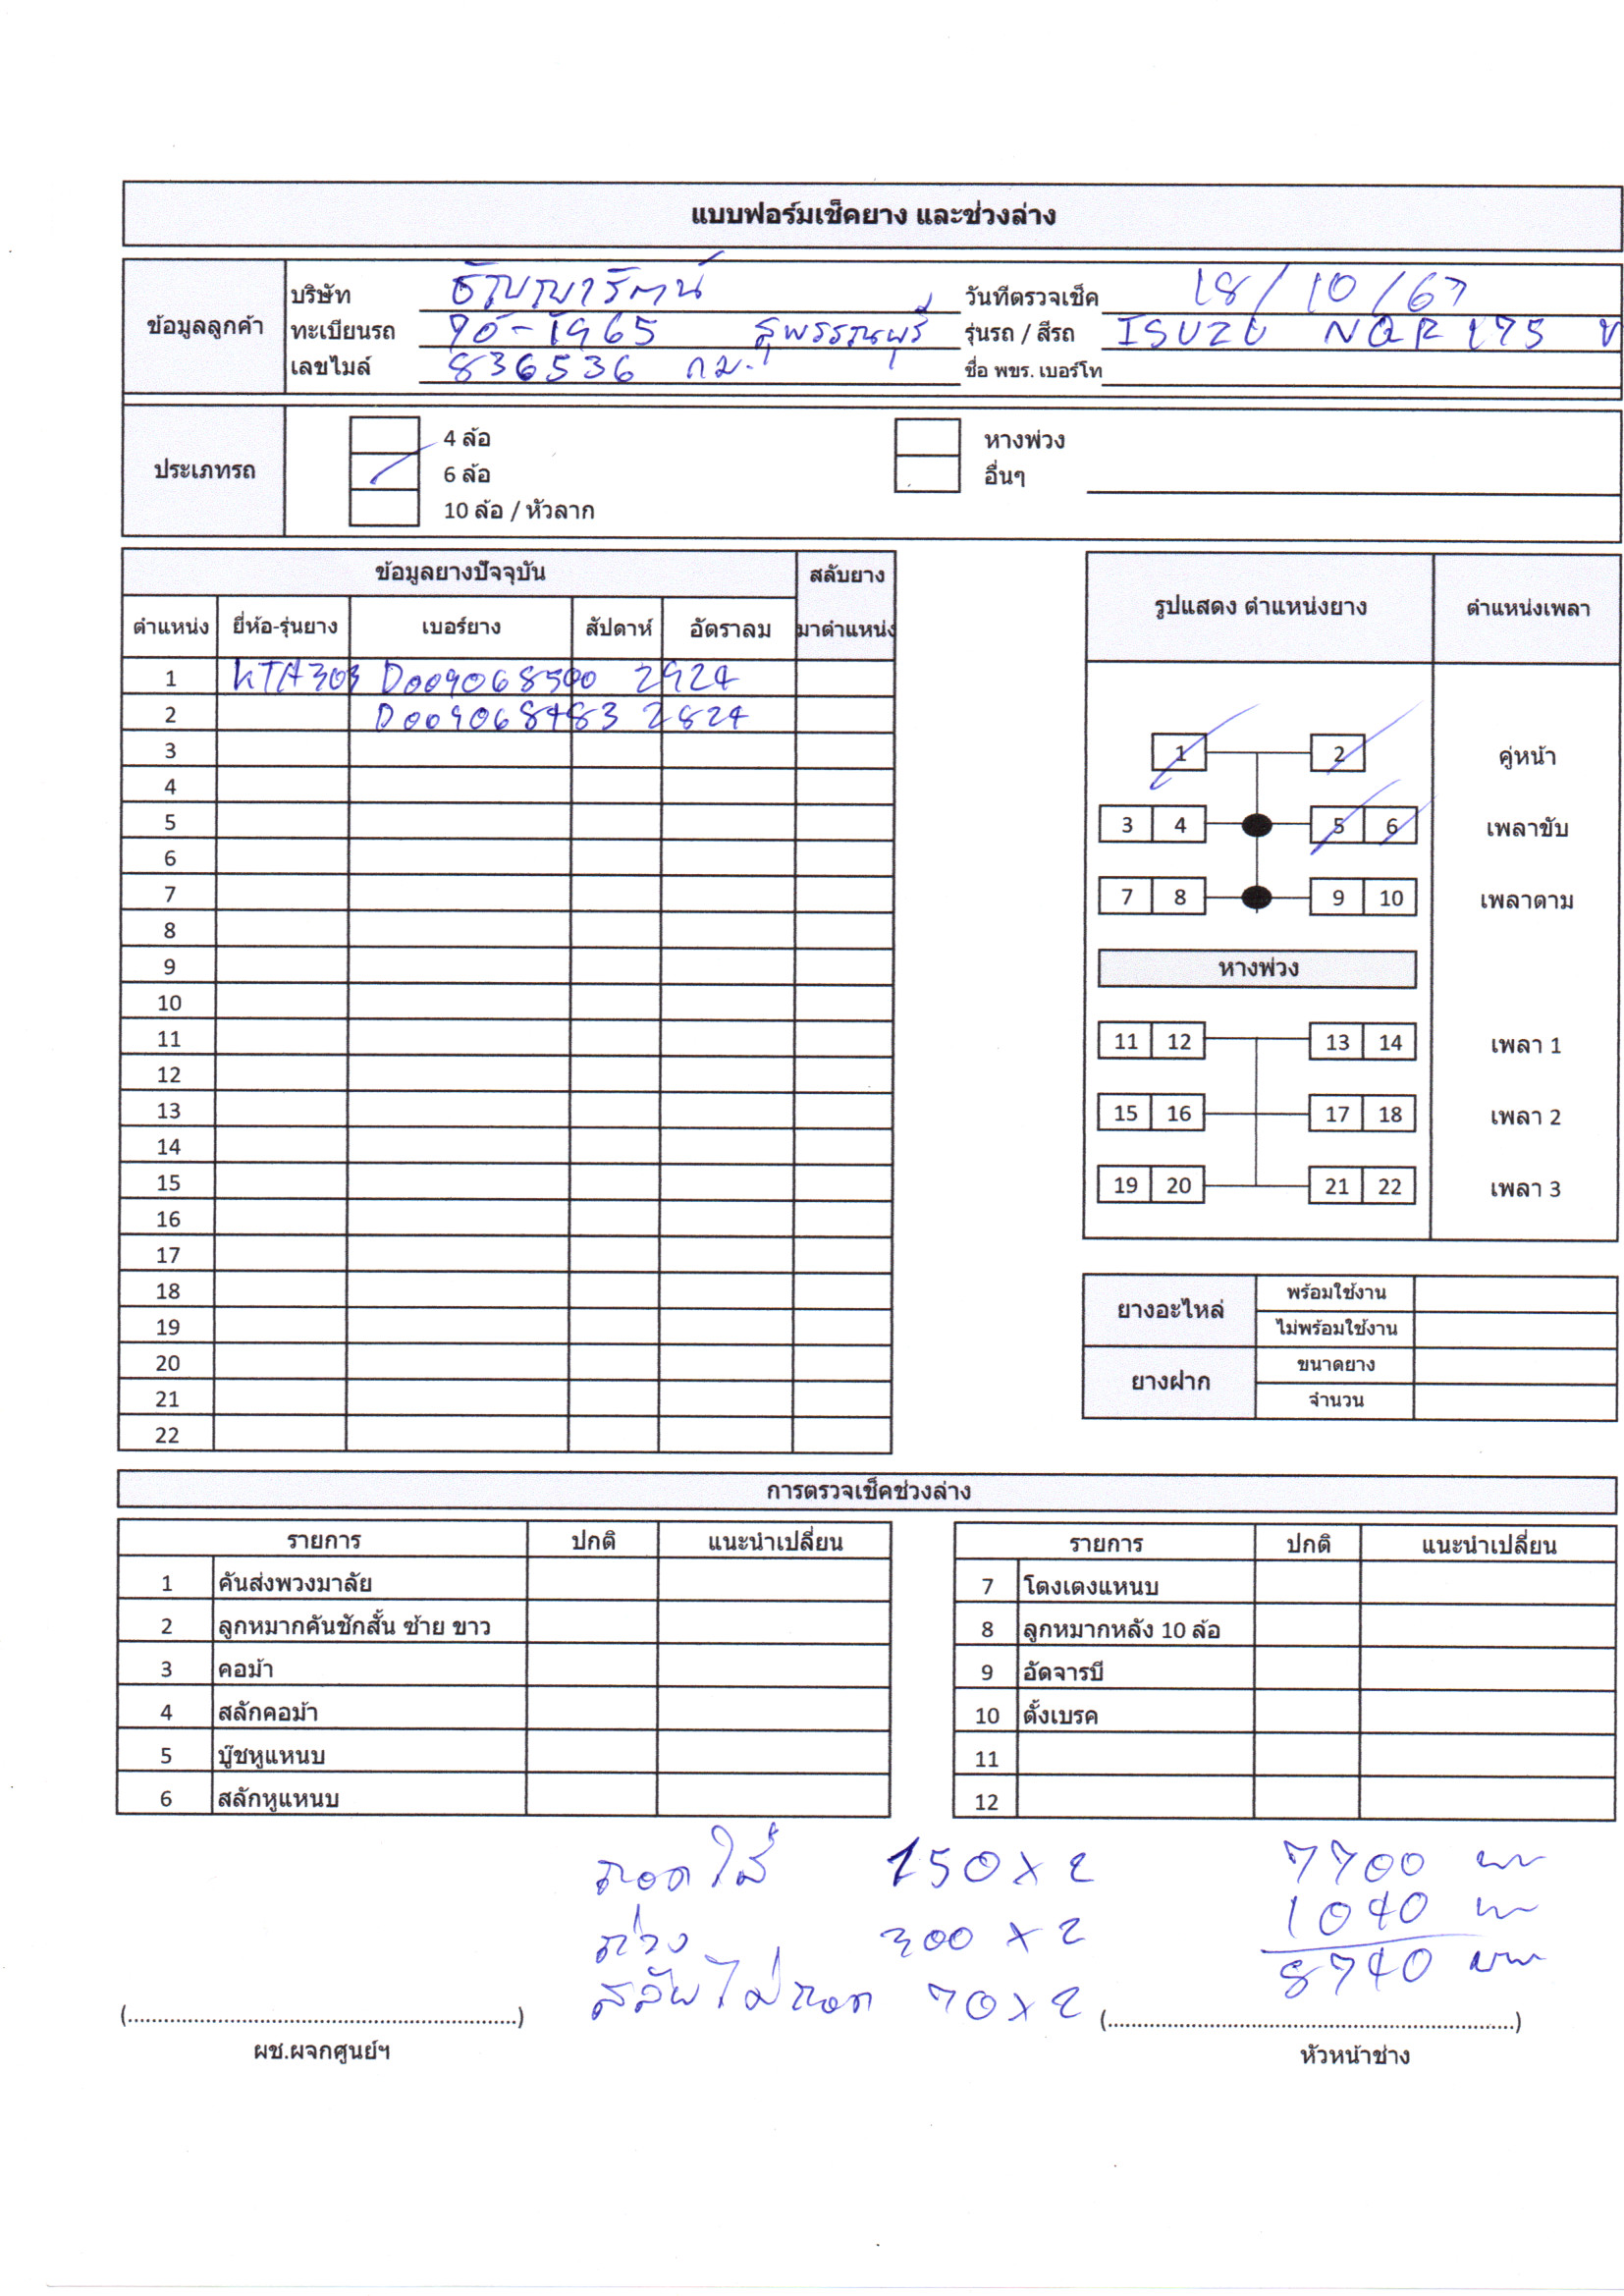 แบบฟอร์มเช็คยาง และช่วงล่าง
ข้อมูลลูกค้า
บริษัท ธัญญารัตน์ วันที่ตรวจเช็ค 18/10/67
ทะเบียนรถ 70-1965 สุพรรณบุรี รุ่นรถ / สีรถ ISUZU NQR 175
เลขไมล์ 836536 กม. ชื่อ พขร. เบอร์โท
ประเภทรถ
4 ล้อ หางพ่วง
6 ล้อ อื่นๆ
10 ล้อ / หัวลาก
ข้อมูลยางปัจจุบัน สลับยาง
ตำแหน่ง ยี่ห้อ-รุ่นยาง เบอร์ยาง สัปดาห์ อัตราลม มาตำแหน่ง
1 KTA303 D009068500 2924
2 D009068483 2824
3
4
5
6
7
8
9
10
11
12
13
14
15
16
17
18
19
20
21
22
รูปแสดง ตำแหน่งยาง ตำแหน่งเพลา
1 2 คู่หน้า
3 4 5 6 เพลาขับ
7 8 9 10 เพลาตาม
หางพ่วง
11 12 13 14 เพลา 1
15 16 17 18 เพลา 2
19 20 21 22 เพลา 3
ยางอะไหล่ พร้อมใช้งาน
ไม่พร้อมใช้งาน
ยางฝาก ขนาดยาง
จำนวน
การตรวจเช็คช่วงล่าง
รายการ ปกติ แนะนำเปลี่ยน
1 คันส่งพวงมาลัย
2 ลูกหมากคันชักสั้น ซ้าย ขาว
3 คอม้า
4 สลักคอม้า
5 บู๊ชหูแหนบ
6 สลักหูแหนบ
รายการ ปกติ แนะนำเปลี่ยน
7 โตงเตงแหนบ
8 ลูกหมากหลัง 10 ล้อ
9 อัดจารบี
10 ตั้งเบรค
11
12
ถอดใส่ 150 x 2 7700
ถ่วง 300 x 2 1040
สลับไม่ถอด 70 x 2 8740
(..............................) (..............................)
ผช.ผจกศูนย์ฯ หัวหน้าช่าง